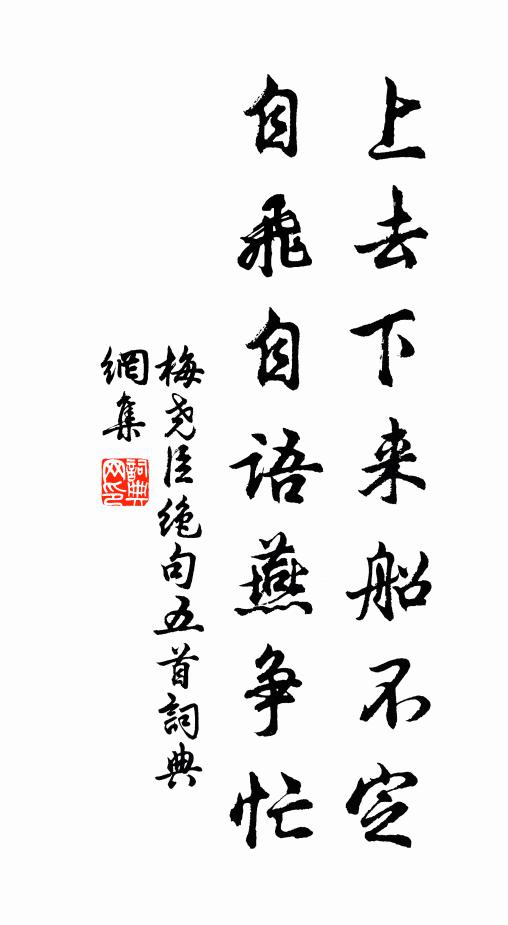 上去下来船不定
自飛自語燕争忙
梅尧臣绝句五首詞典
網集
詞典網印